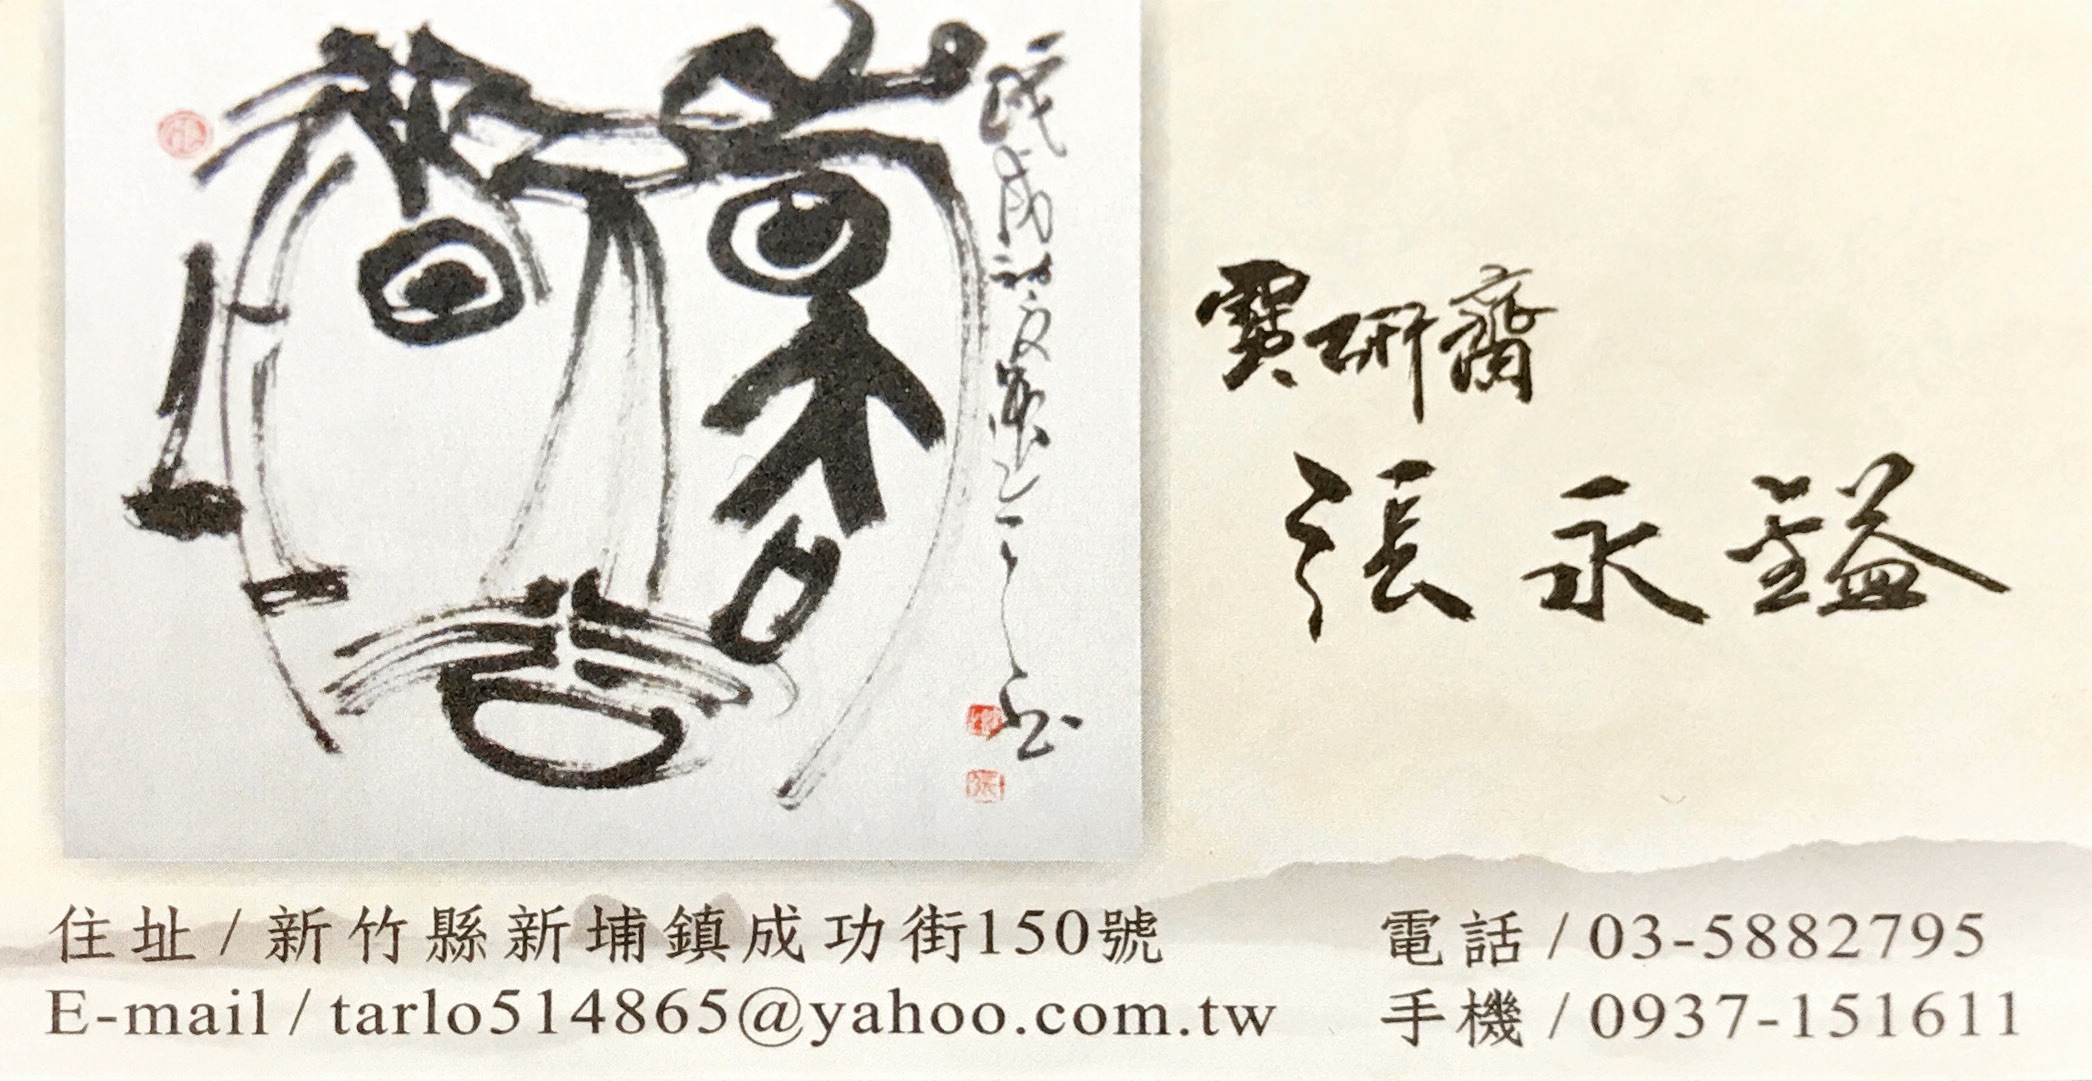 寶研齋
張永鎰
住址/新竹縣新埔鎮成功街150號
E-mail/tarlo514865@yahoo.com.tw
電話/03-5882795
手機/0937-151611